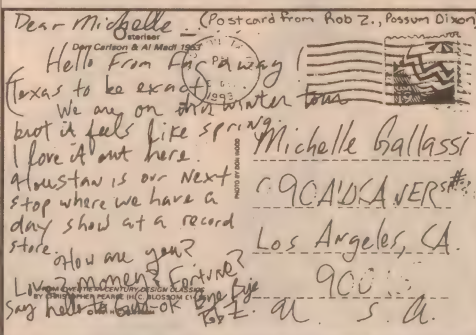 Dear Michelle - (Postcard from Rob Z., Possum Dixon)
Don Carlson & Al Madl 1953
Hello from far away!
(Texas to be exact)
We are on our winter tour
but it feels like spring.
I love it out here.
Houston is our next
stop where we have a
day show at a record
store.
How are you?
Fortune?
Say hello to
ok Bye Bye
Rob Z.
PM
1993
PHOTO BY DON WOOD
TWENTIETH CENTURY DESIGN CLASSICS
BY CHRISTOPHER PEARCE (H.C. BLOSSOM
Michelle Gallassi
Los Angeles, CA.
900
U S A.